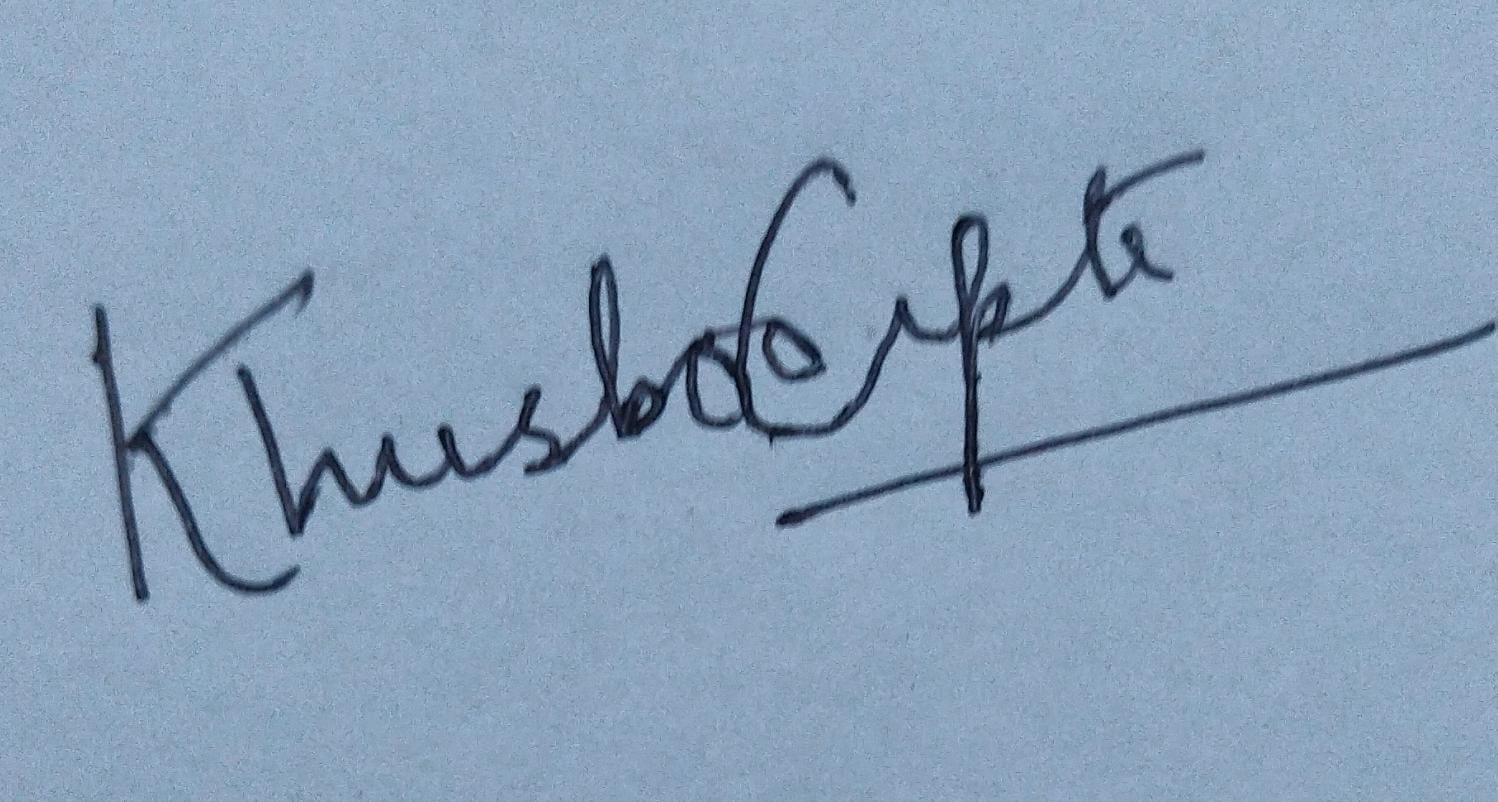 Khusboo Gupta